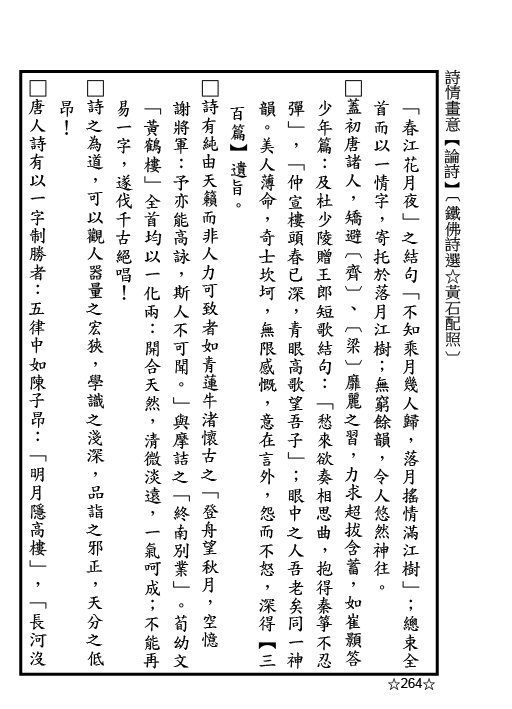 詩情畫意【論詩】〔鐵佛詩選☆黃石配照〕
「春江花月夜」之結句「不知乘月幾人歸，落月搖情滿江樹」；總束全
首而以一情字，寄托於落月江樹；無窮餘韻，令人悠然神往。
□蓋初唐諸人，矯避〔齊〕、〔梁〕靡麗之習，力求超拔含蓄，如崔顥答
少年篇：及杜少陵贈王郎短歌結句：「愁來欲奏相思曲，抱得秦箏不忍
彈」，「仲宣樓頭春已深，青眼高歌望吾子」；眼中之人吾老矣同一神
韻。美人薄命，奇士坎坷，無限感慨，意在言外，怨而不怒，深得【三
百篇】遺旨。
□詩有純由天籟而非人力可致者如青蓮牛渚懷古之「登舟望秋月，空憶
謝將軍：予亦能高詠，斯人不可聞。」與摩詰之「終南別業」。荀幼文
「黃鶴樓」全首均以一化兩：開合天然，清微淡遠，一氣呵成；不能再
易一字，遂伐千古絕唱！
□詩之為道，可以觀人器量之宏狹，學識之淺深，品詣之邪正，天分之低
昂！
□唐人詩有以一字制勝者：五律中如陳子昂：「明月隱高樓」，「長河沒
☆264☆